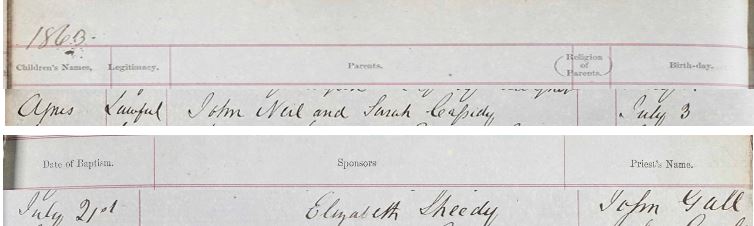 1863.
Children's Names, Legitimacy. Parents. Religion of Parents. Birth-day.
Agnes Lawful John Neil and Sarah Cassidy July 3
Date of Baptism. Sponsors Priest's Name.
July 21st Elizabeth Sheedy John Gall